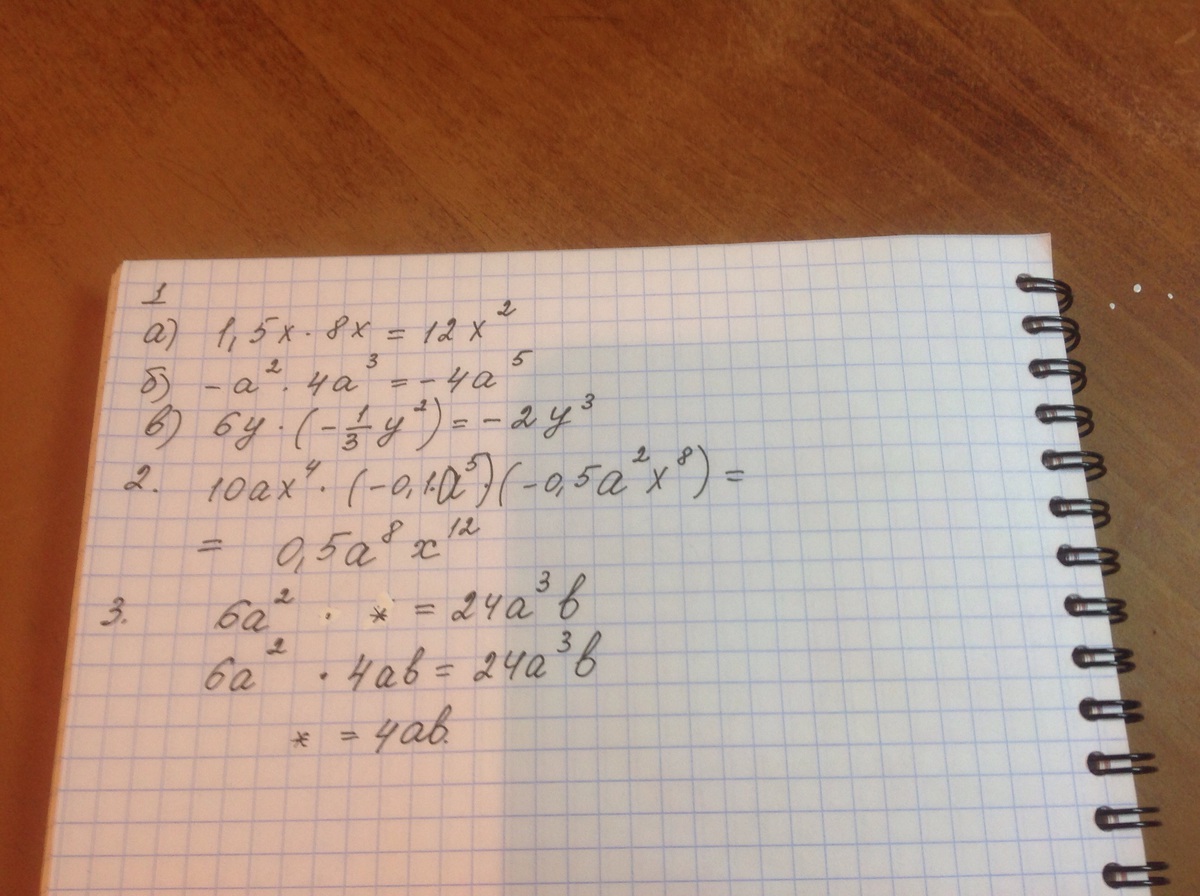 1
а) 1,5x · 8x = 12x²
б) -a² · 4a³ = -4a⁵
в) 6y · (-1/3 y²) = -2y³
2. 10ax⁴ · (-0,1·a⁵)(-0,5a²x⁸) =
= 0,5a⁸x¹²
3. 6a² · * = 24a³b
6a² · 4ab = 24a³b
* = 4ab.